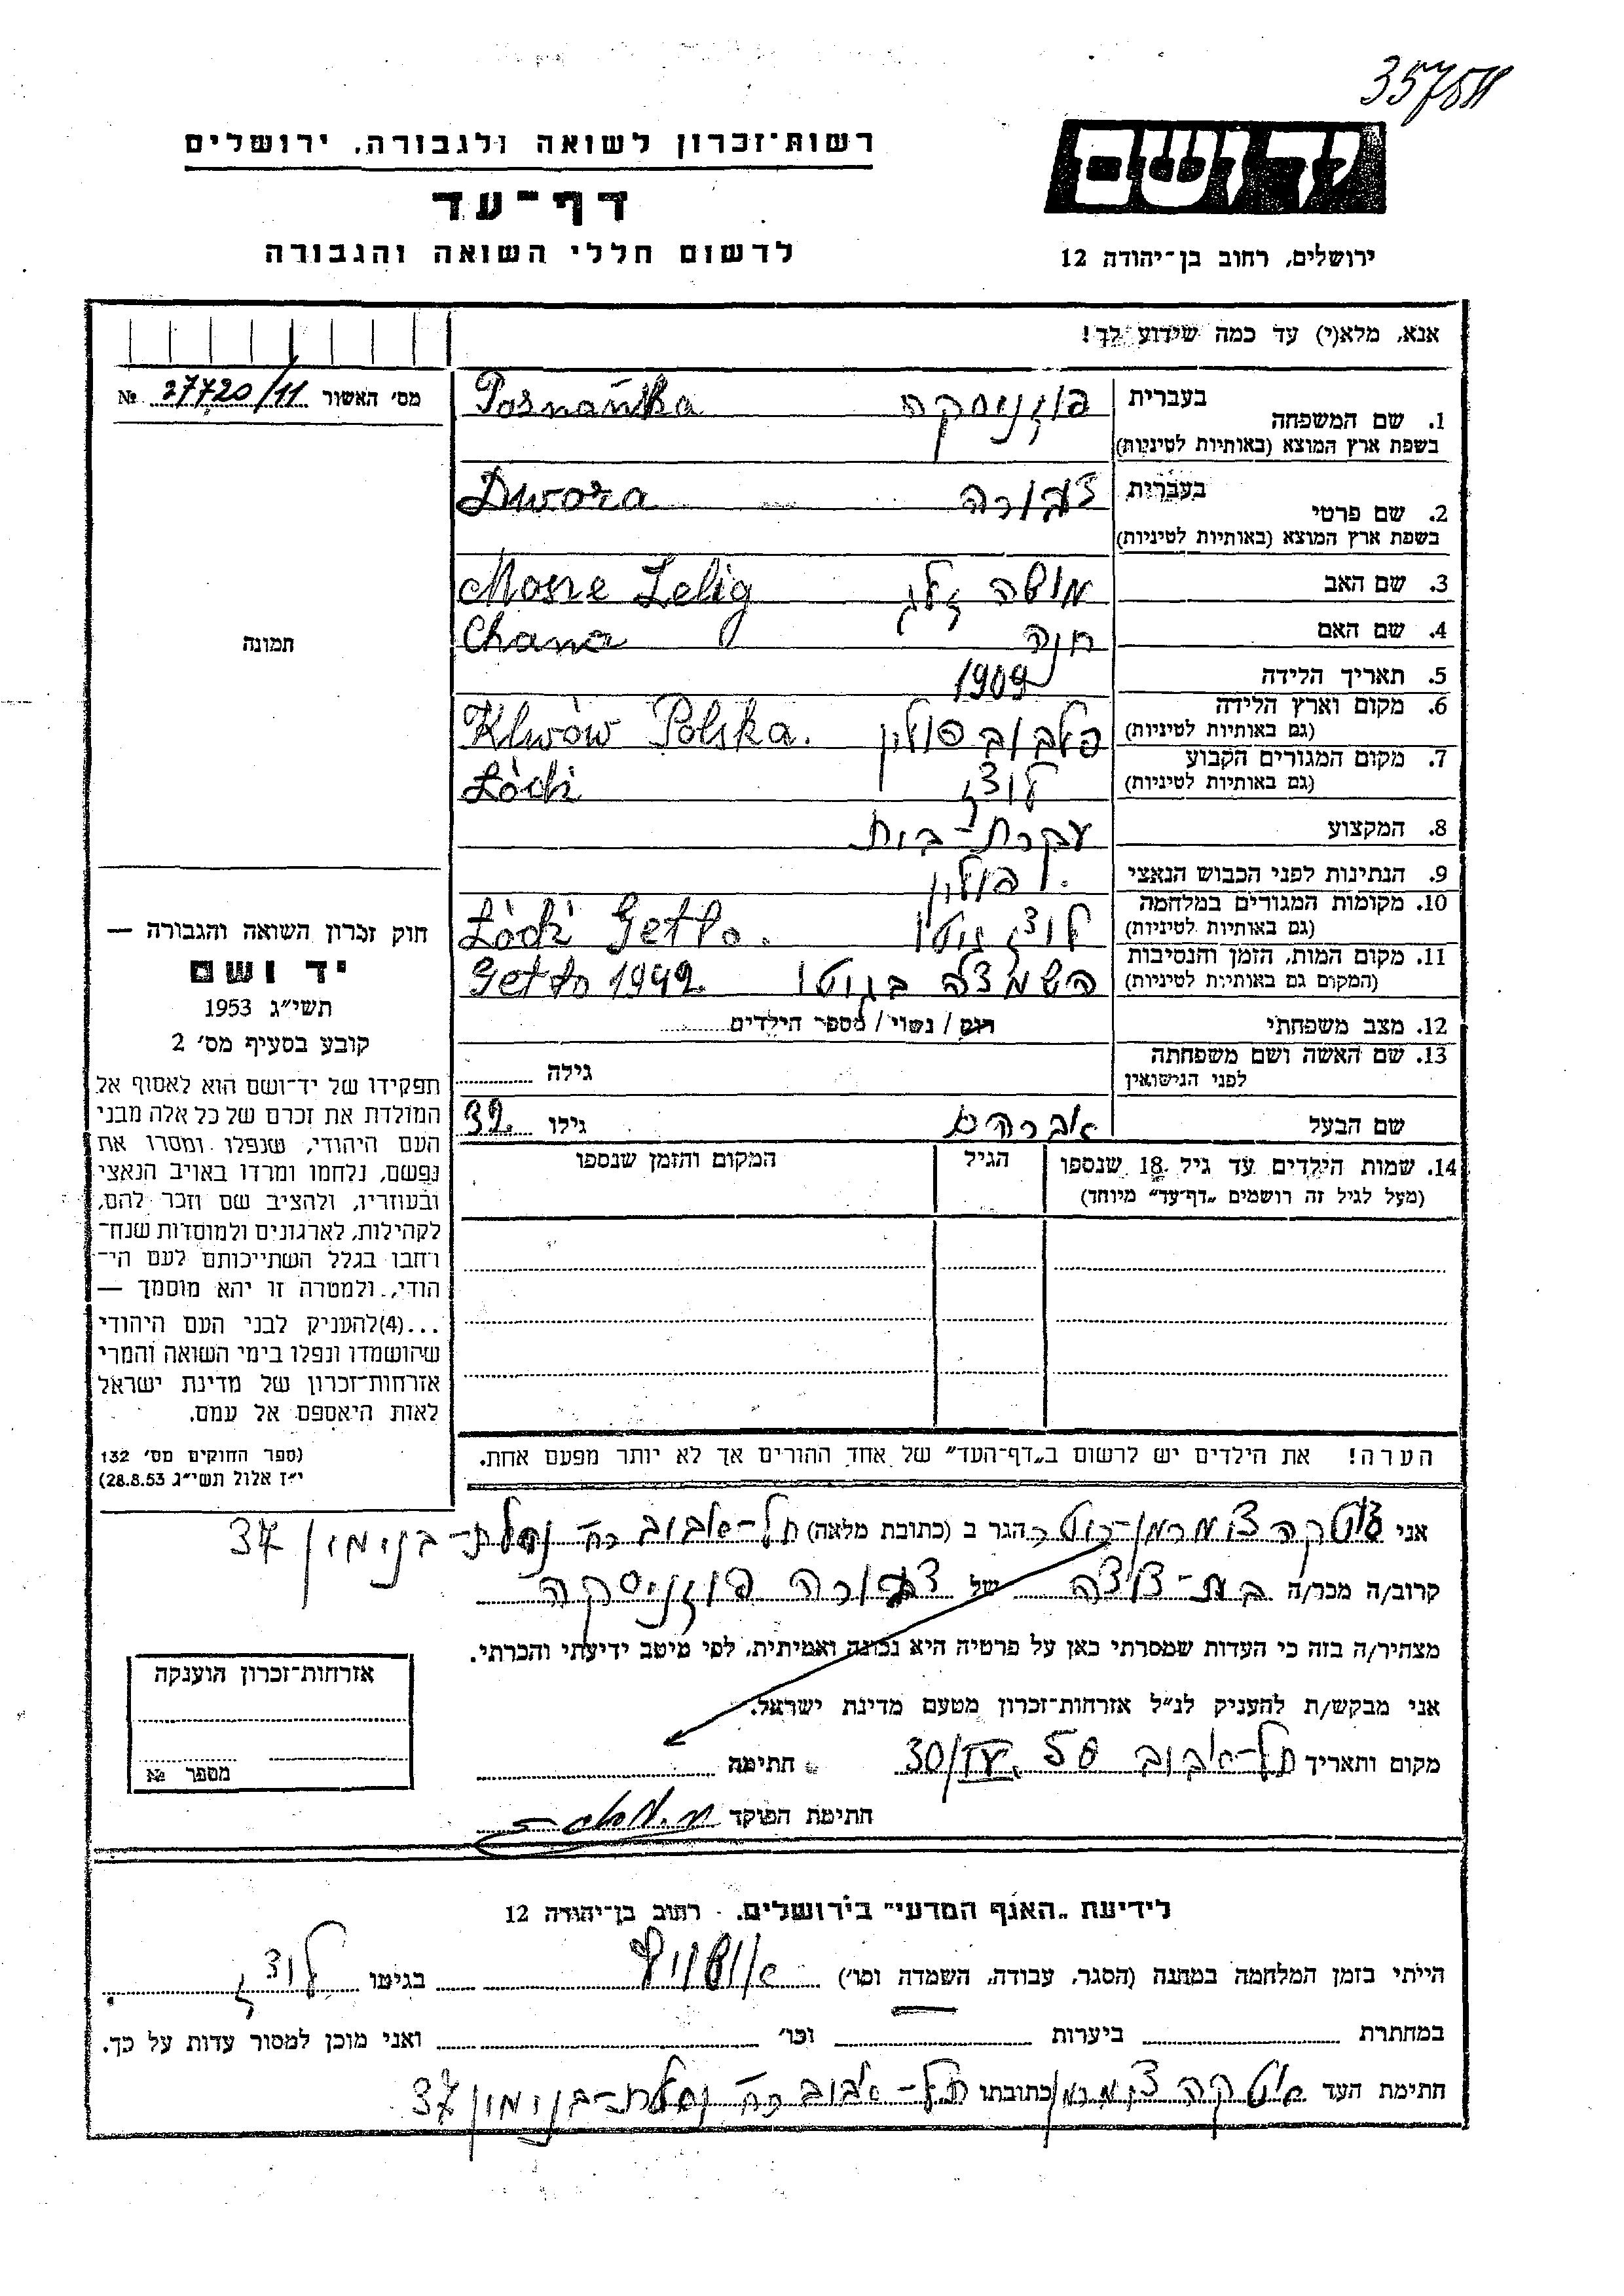 357511
יד ושם
רשות־זכרון לשואה ולגבורה, ירושלים
דף־עד
לרשום חללי השואה והגבורה
ירושלים, רחוב בן־יהודה 12
אנא, מלא(י) עד כמה שידוע לך!
מס׳ האשור 27720/11 №
תמונה
1. שם המשפחה בעברית פוזניסקה Posnańska
בשפת ארץ המוצא (באותיות לטיניות)
2. שם פרטי בעברית דבורה Dwora
בשפת ארץ המוצא (באותיות לטיניות)
3. שם האב משה זליג Mosze Zelig
4. שם האם חנה Chana
5. תאריך הלידה 1909
6. מקום וארץ הלידה Klwów Polska.
(גם באותיות לטיניות)
7. מקום המגורים הקבוע לודז Łódź
(גם באותיות לטיניות)
8. המקצוע עקרת־בית
9. הנתינות לפני הכבוש הנאצי פולין
10. מקומות המגורים במלחמה לודז גיטו Łódź Getto.
(גם באותיות לטיניות)
11. מקום המות, הזמן והנסיבות בגיטו Getto 1942
(המקום גם באותיות לטיניות)
12. מצב משפחתי רווק / נשוי / מספר הילדים
13. שם האשה ושם משפחתה
לפני הנישואין גילה
שם הבעל אברהם גילו 32
14. שמות הילדים עד גיל 18 שנספו הגיל המקום והזמן שנספו
(מעל לגיל זה רושמים „דף־עד״ מיוחד)
הערה! את הילדים יש לרשום ב„דף־העד״ של אחד ההורים אך לא יותר מפעם אחת.
חוק זכרון השואה והגבורה —
יד ושם
תשי״ג 1953
קובע בסעיף מס׳ 2
תפקידו של יד־ושם הוא לאסוף אל
המולדת את זכרם של כל אלה מבני
העם היהודי, שנפלו ומסרו את
נפשם, נלחמו ומרדו באויב הנאצי
ובעוזריו, ולהציב שם וזכר להם,
לקהילות, לארגונים ולמוסדות שנח־
רחבו בגלל השתייכותם לעם הי־
הודי, ולמטרה זו יהא מוסמך —
...(4)להעניק לבני העם היהודי
שהושמדו ונפלו בימי השואה והמרי
אזרחות־זכרון של מדינת ישראל
לאות היאספם אל עמם.
(ספר החוקים מס׳ 132
י״ז אלול תשי״ג 28.8.53)
אני איטקה צוקרמן הגר ב (כתובת מלאה) תל־אביב רח׳ נחלת־בנימין 37
קרוב/ה מכר/ה בת־דודה של דבורה פוזניסקה
מצהיר/ה בזה כי העדות שמסרתי כאן על פרטיה היא נכונה ואמיתית, לפי מיטב ידיעתי והכרתי.
אני מבקש/ת להעניק לנ״ל אזרחות־זכרון מטעם מדינת ישראל.
מקום ותאריך תל־אביב חתימה
חתימת הפוקד
אזרחות־זכרון הוענקה
מספר №
לידיעת „האגף המדעי״ בירושלים. רחוב בן־יהודה 12
הייתי בזמן המלחמה במחנה (הסגר, עבודה, השמדה וכו׳) אושויץ בגיטו לודז
במחתרת ביערות וכו׳ ואני מוכן למסור עדות על כך.
חתימת העד איטקה צוקרמן כתובתו תל־אביב רח׳ נחלת־בנימין 37